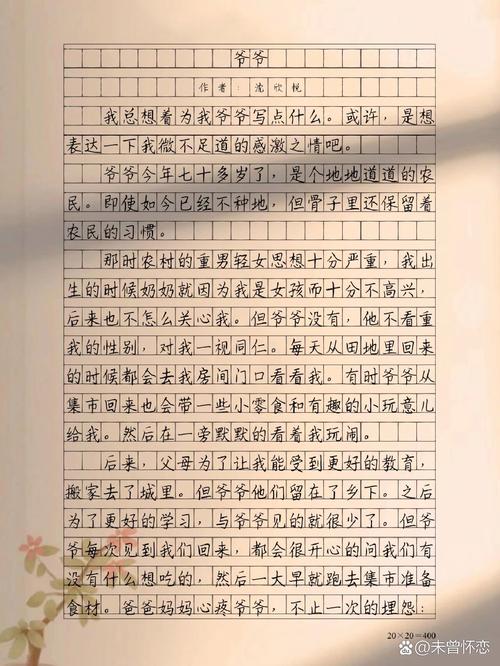 爷爷
作者：沈欣悦
我总想着为我爷爷写点什么。或许，是想
表达一下我微不足道的感激之情吧。
爷爷今年七十多岁了，是个地地道道的农
民。即使如今已经不种地，但骨子里还保留着
农民的习惯。
那时农村的重男轻女思想十分严重，我出
生的时候奶奶就因为我是女孩而十分不高兴，
后来也不怎么关心我。但爷爷没有，他不看重
我的性别，对我一视同仁。每天从田地里回来
的时候都会去我房间门口看看我。有时爷爷从
集市回来也会带一些小零食和有趣的小玩意儿
给我。然后在一旁默默的看着我玩闹。
后来，父母为了让我能受到更好的教育，
搬家去了城里。但爷爷他们留在了乡下。之后
为了更好的学习，与爷爷见的就很少了。但爷
爷每次见到我们回来，都会很开心的问我们有
没有什么想吃的，然后一大早就跑去集市准备
食材。爸爸妈妈心疼爷爷，不止一次的埋怨：
20×20=400
未曾怀恋